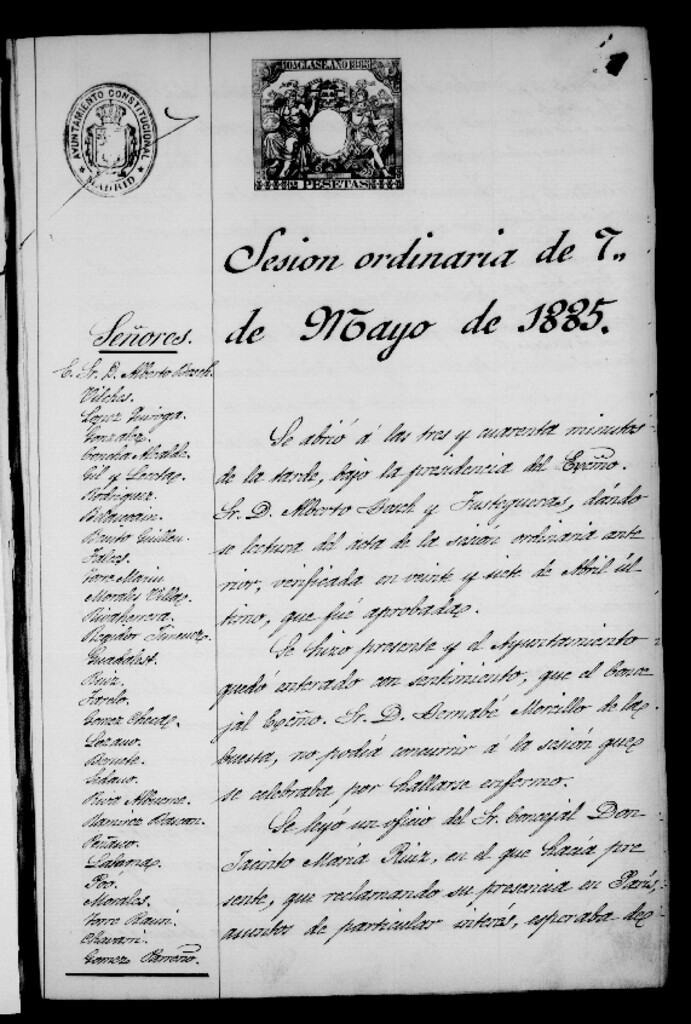 AYUNTAMIENTO CONSTITUCIONAL
MADRID
10A CLASE AÑO 1885
PESETAS
Sesion ordinaria de 7,,
de Mayo de 1885.
Señores.
E. Sr. D. Alberto Bosch.
Vilches.
Lopez Quiroga.
Gonzalez.
Concha Alcalde.
Gil y Leceta.
Rodriguez.
Benito Guillen.
Jalces.
Torre Marin
Morales Villa
Rivaherrera.
Regidor Jimenez.
Guadalest.
Ruiz.
Farelo.
Gomez Checa
Lozano.
Benete.
Solano.
Riva
Ramirez Bascan.
Peñasco.
Labagna
Póo.
Morales.
Torre Rauri.
Chavarri.
Gomez Parreño.
Se abrió á las tres y cuarenta minutos
de la tarde, bajo la presidencia del Excmo.
Sr. D. Alberto Bosch y Fustegueras, dándo
se lectura del acta de la sesion ordinaria ante
rior, verificada en veinte y siete de Abril úl
timo, que fué aprobada.
Se hizo presente y el Ayuntamiento
quedó enterado con sentimiento, que el Conce
jal Excmo. Sr. D. Bernabé Morcillo de la
Cuesta, no podia concurrir á la sesión que
se celebraba por hallarse enfermo.
Se leyó un oficio del Sr. Concejal Don
Jacinto María Ruiz, en el que hacía pre
sente, que reclamando su presencia en París,
asuntos de particular interés, esperaba de